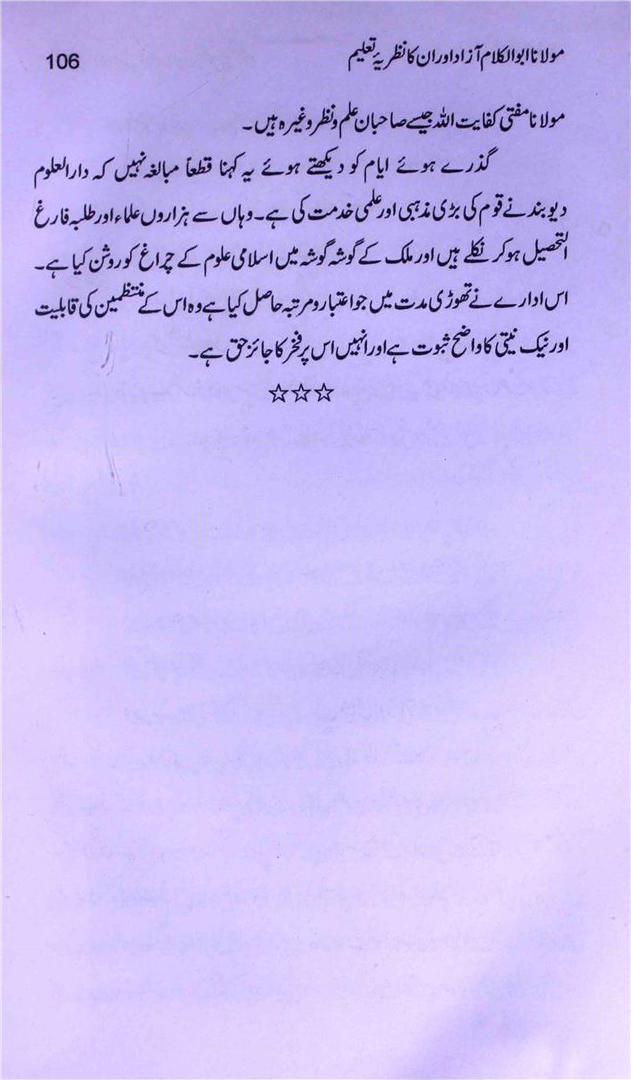 مولانا ابوالکلام آزاد اور ان کا نظریۂ تعلیم 106
مولانا مفتی کفایت اللہ جیسے صاحبان علم و نظر وغیرہ ہیں۔
گذرے ہوئے ایام کو دیکھتے ہوئے یہ کہنا قطعاً مبالغہ نہیں کہ دارالعلوم
دیوبند نے قوم کی بڑی مذہبی اور علمی خدمت کی ہے۔ وہاں سے ہزاروں علماء اور طلبہ فارغ
التحصیل ہو کر نکلے ہیں اور ملک کے گوشہ گوشہ میں اسلامی علوم کے چراغ کو روشن کیا ہے۔
اس ادارے نے تھوڑی مدت میں جو اعتبار و مرتبہ حاصل کیا ہے وہ اس کے منتظمین کی قابلیت
اور نیک نیتی کا واضح ثبوت ہے اور انہیں اس پر فخر کا جائز حق ہے۔
☆☆☆